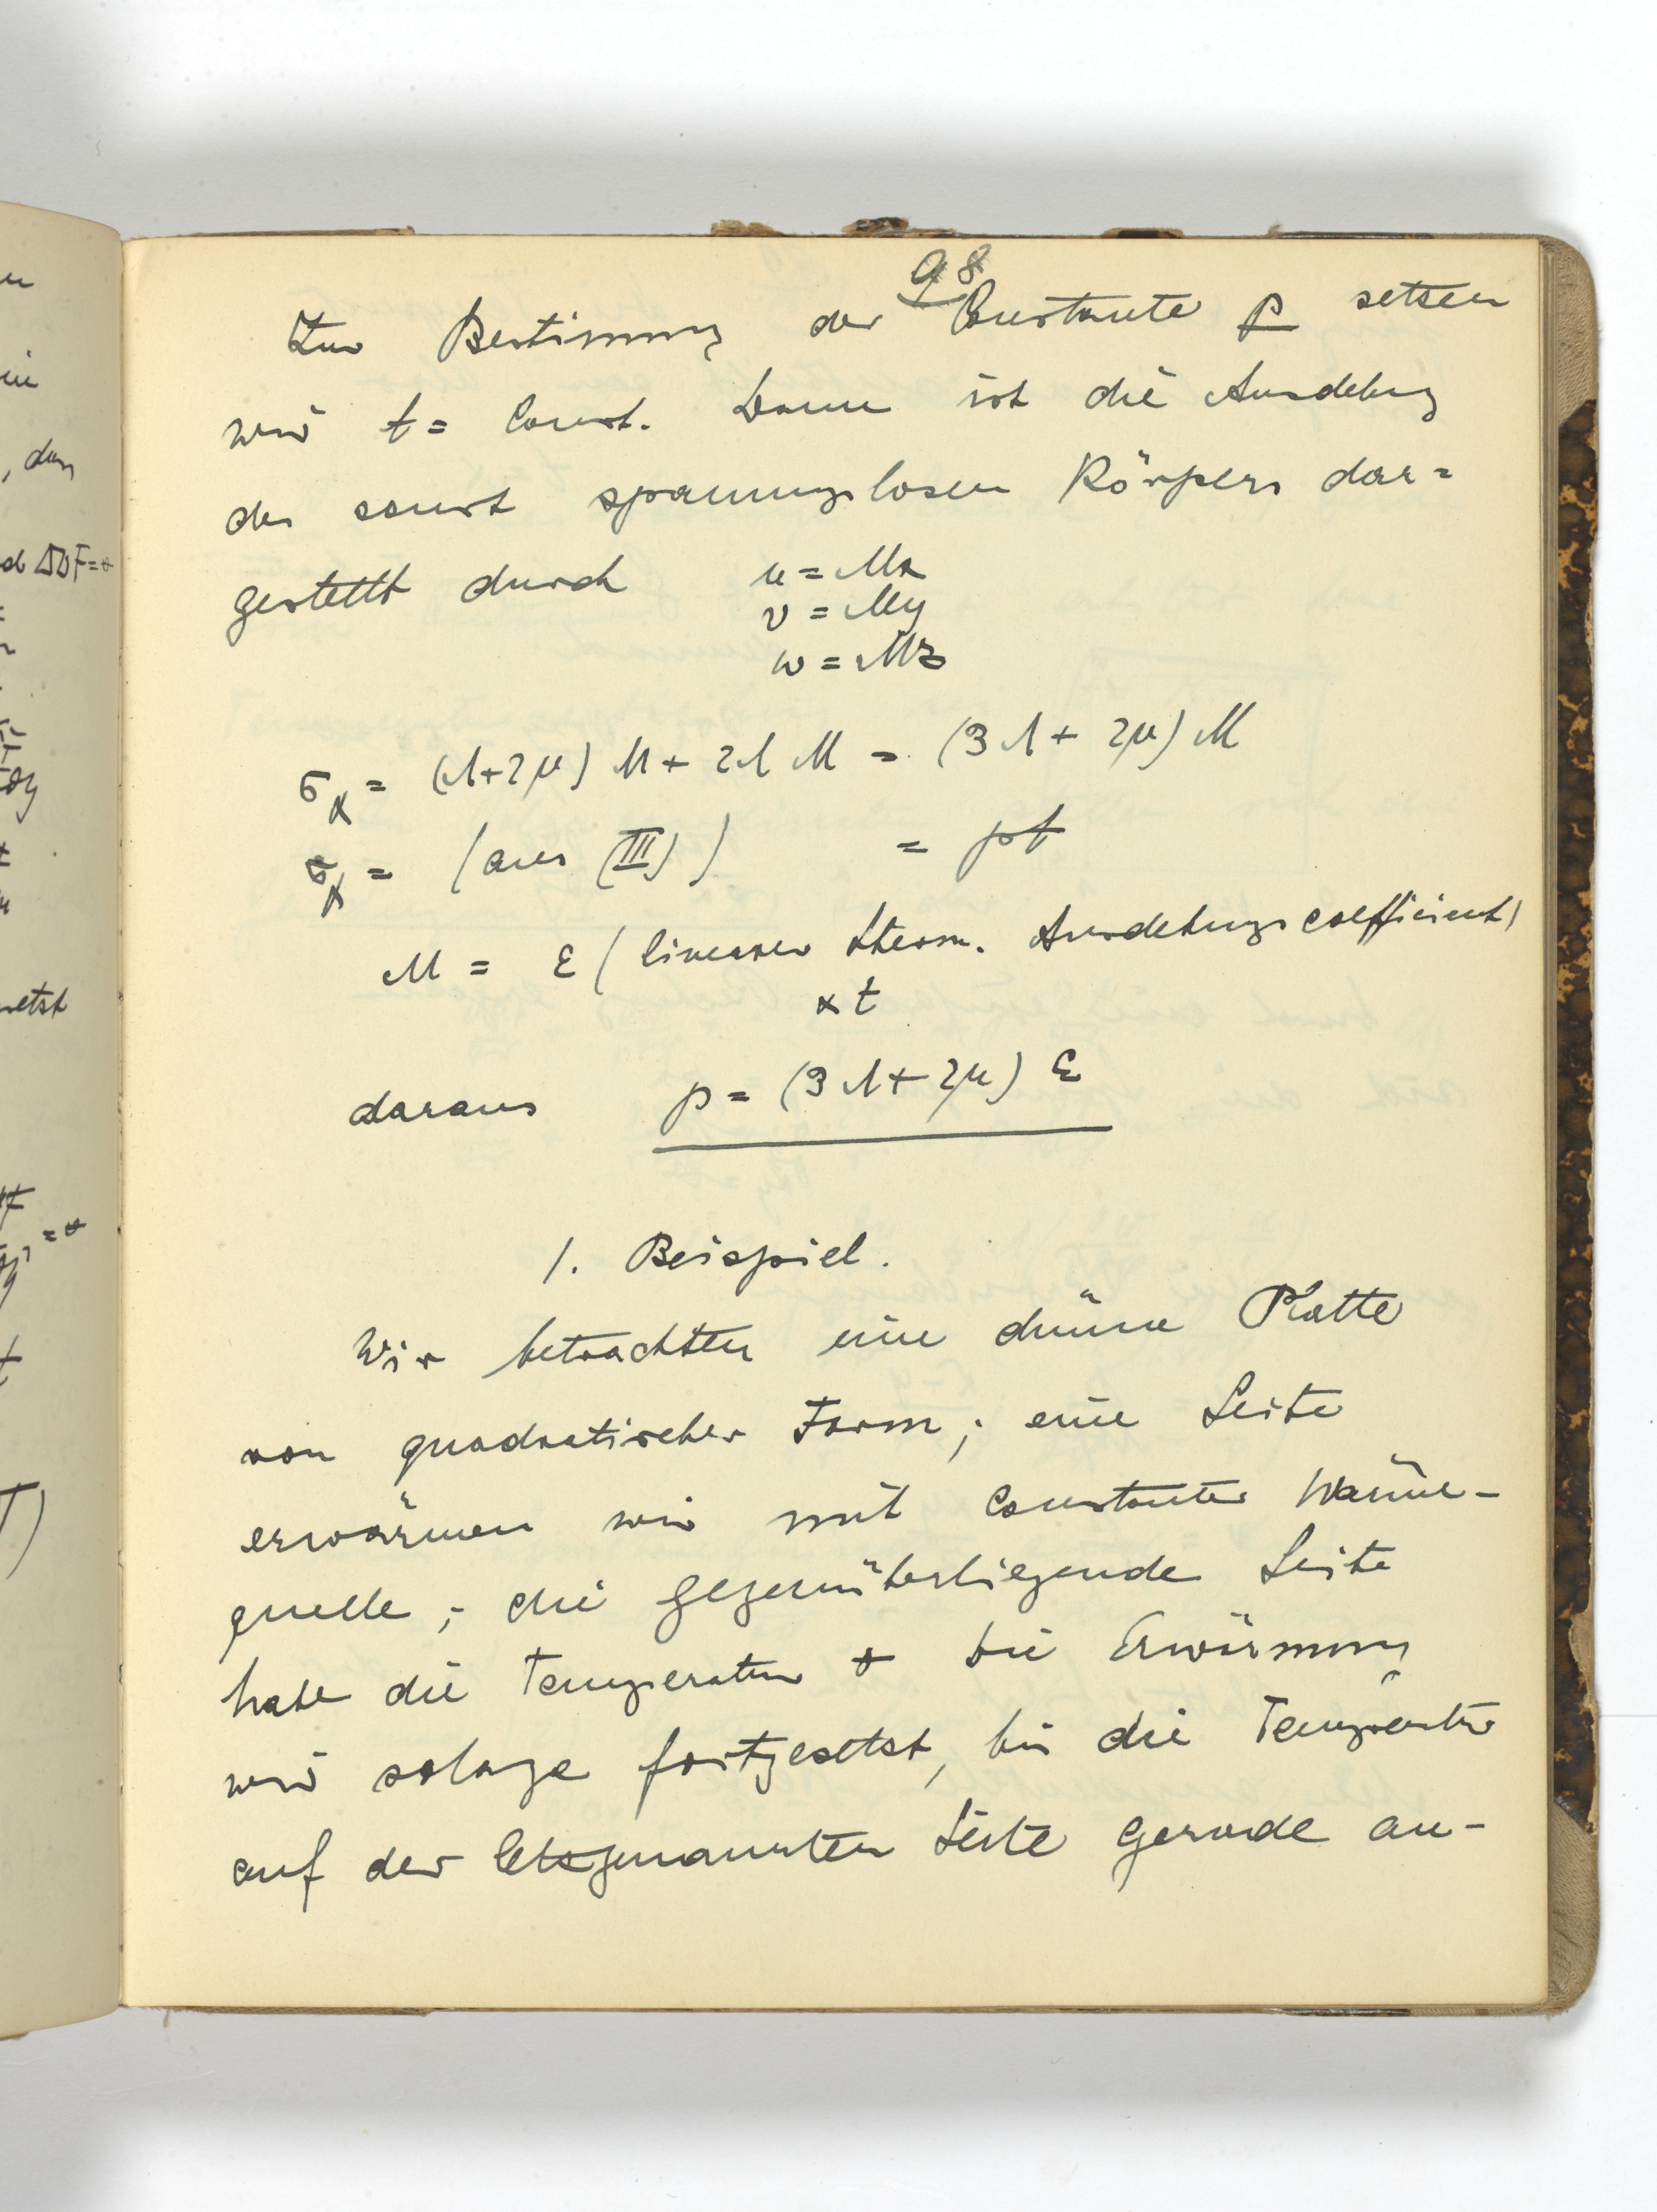 98
Zur Bestimmung der Constante p setzen
wir t = Const. Dann ist die Ausdehng
des sonst spannungslosen Körpers dar=
gestellt durch u = Mx
v = My
w = Mz
σx = (λ+2μ) M + 2λ M = (3λ + 2μ) M
σx = (aus (III)) = pt
M = ε (linearer therm. Ausdehnungscoefficient)
x t
daraus p = (3λ + 2μ) ε
1. Beispiel.
Wir betrachten eine dünne Platte
von quadratischer Form; eine Seite
erwärmen wir mit constanter Wärme-
quelle; die gegenüberliegende Seite
habe die Temperatur 0 Die Erwärmung
wird solange fortgesetzt, bis die Temperatur
auf der letztgenannten Seite gerade an-
d ΔΔF = 0